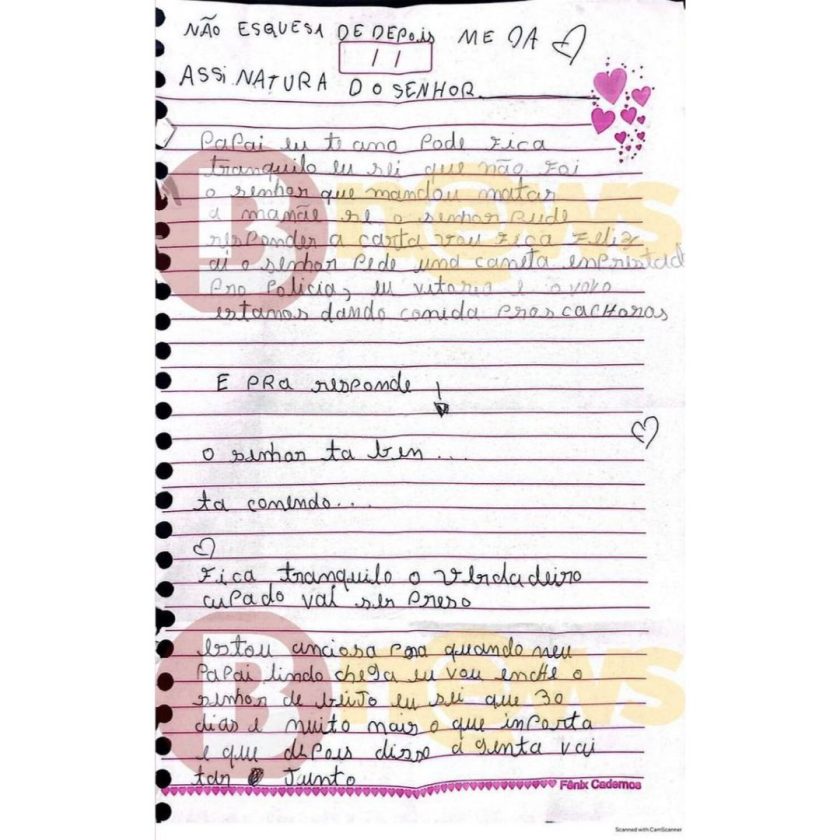 NÃO ESQUESA DE DEPOIS ME DA
/ /
ASSINATURA DO SENHOR
PaPai eu te amo Pode Fica
tranquilo eu sei que não Foi
o senhor que mandou matar
a mamãe se o senhor Pude
responder a carta vou Fica Feliz
ai o senhor Pede uma caneta enPrestada
Pro Policia, eu vitoria e o vovo
estamos dando comida Pros cacHoros
E PRa responde
o senhor ta ben...
ta comendo...
Fica tranquilo o verdadeiro
cupado vai ser Preso
estou anciosa Pra quando meu
PaPai lindo chega eu vou encHe o
senhor de beiJo eu sei que 30
dias e muito mais o que inPorta
e que dePois disso a genta vai
tar Junto
Fênix Cadernos
Bnews
Bnews
Scanned with CamScanner